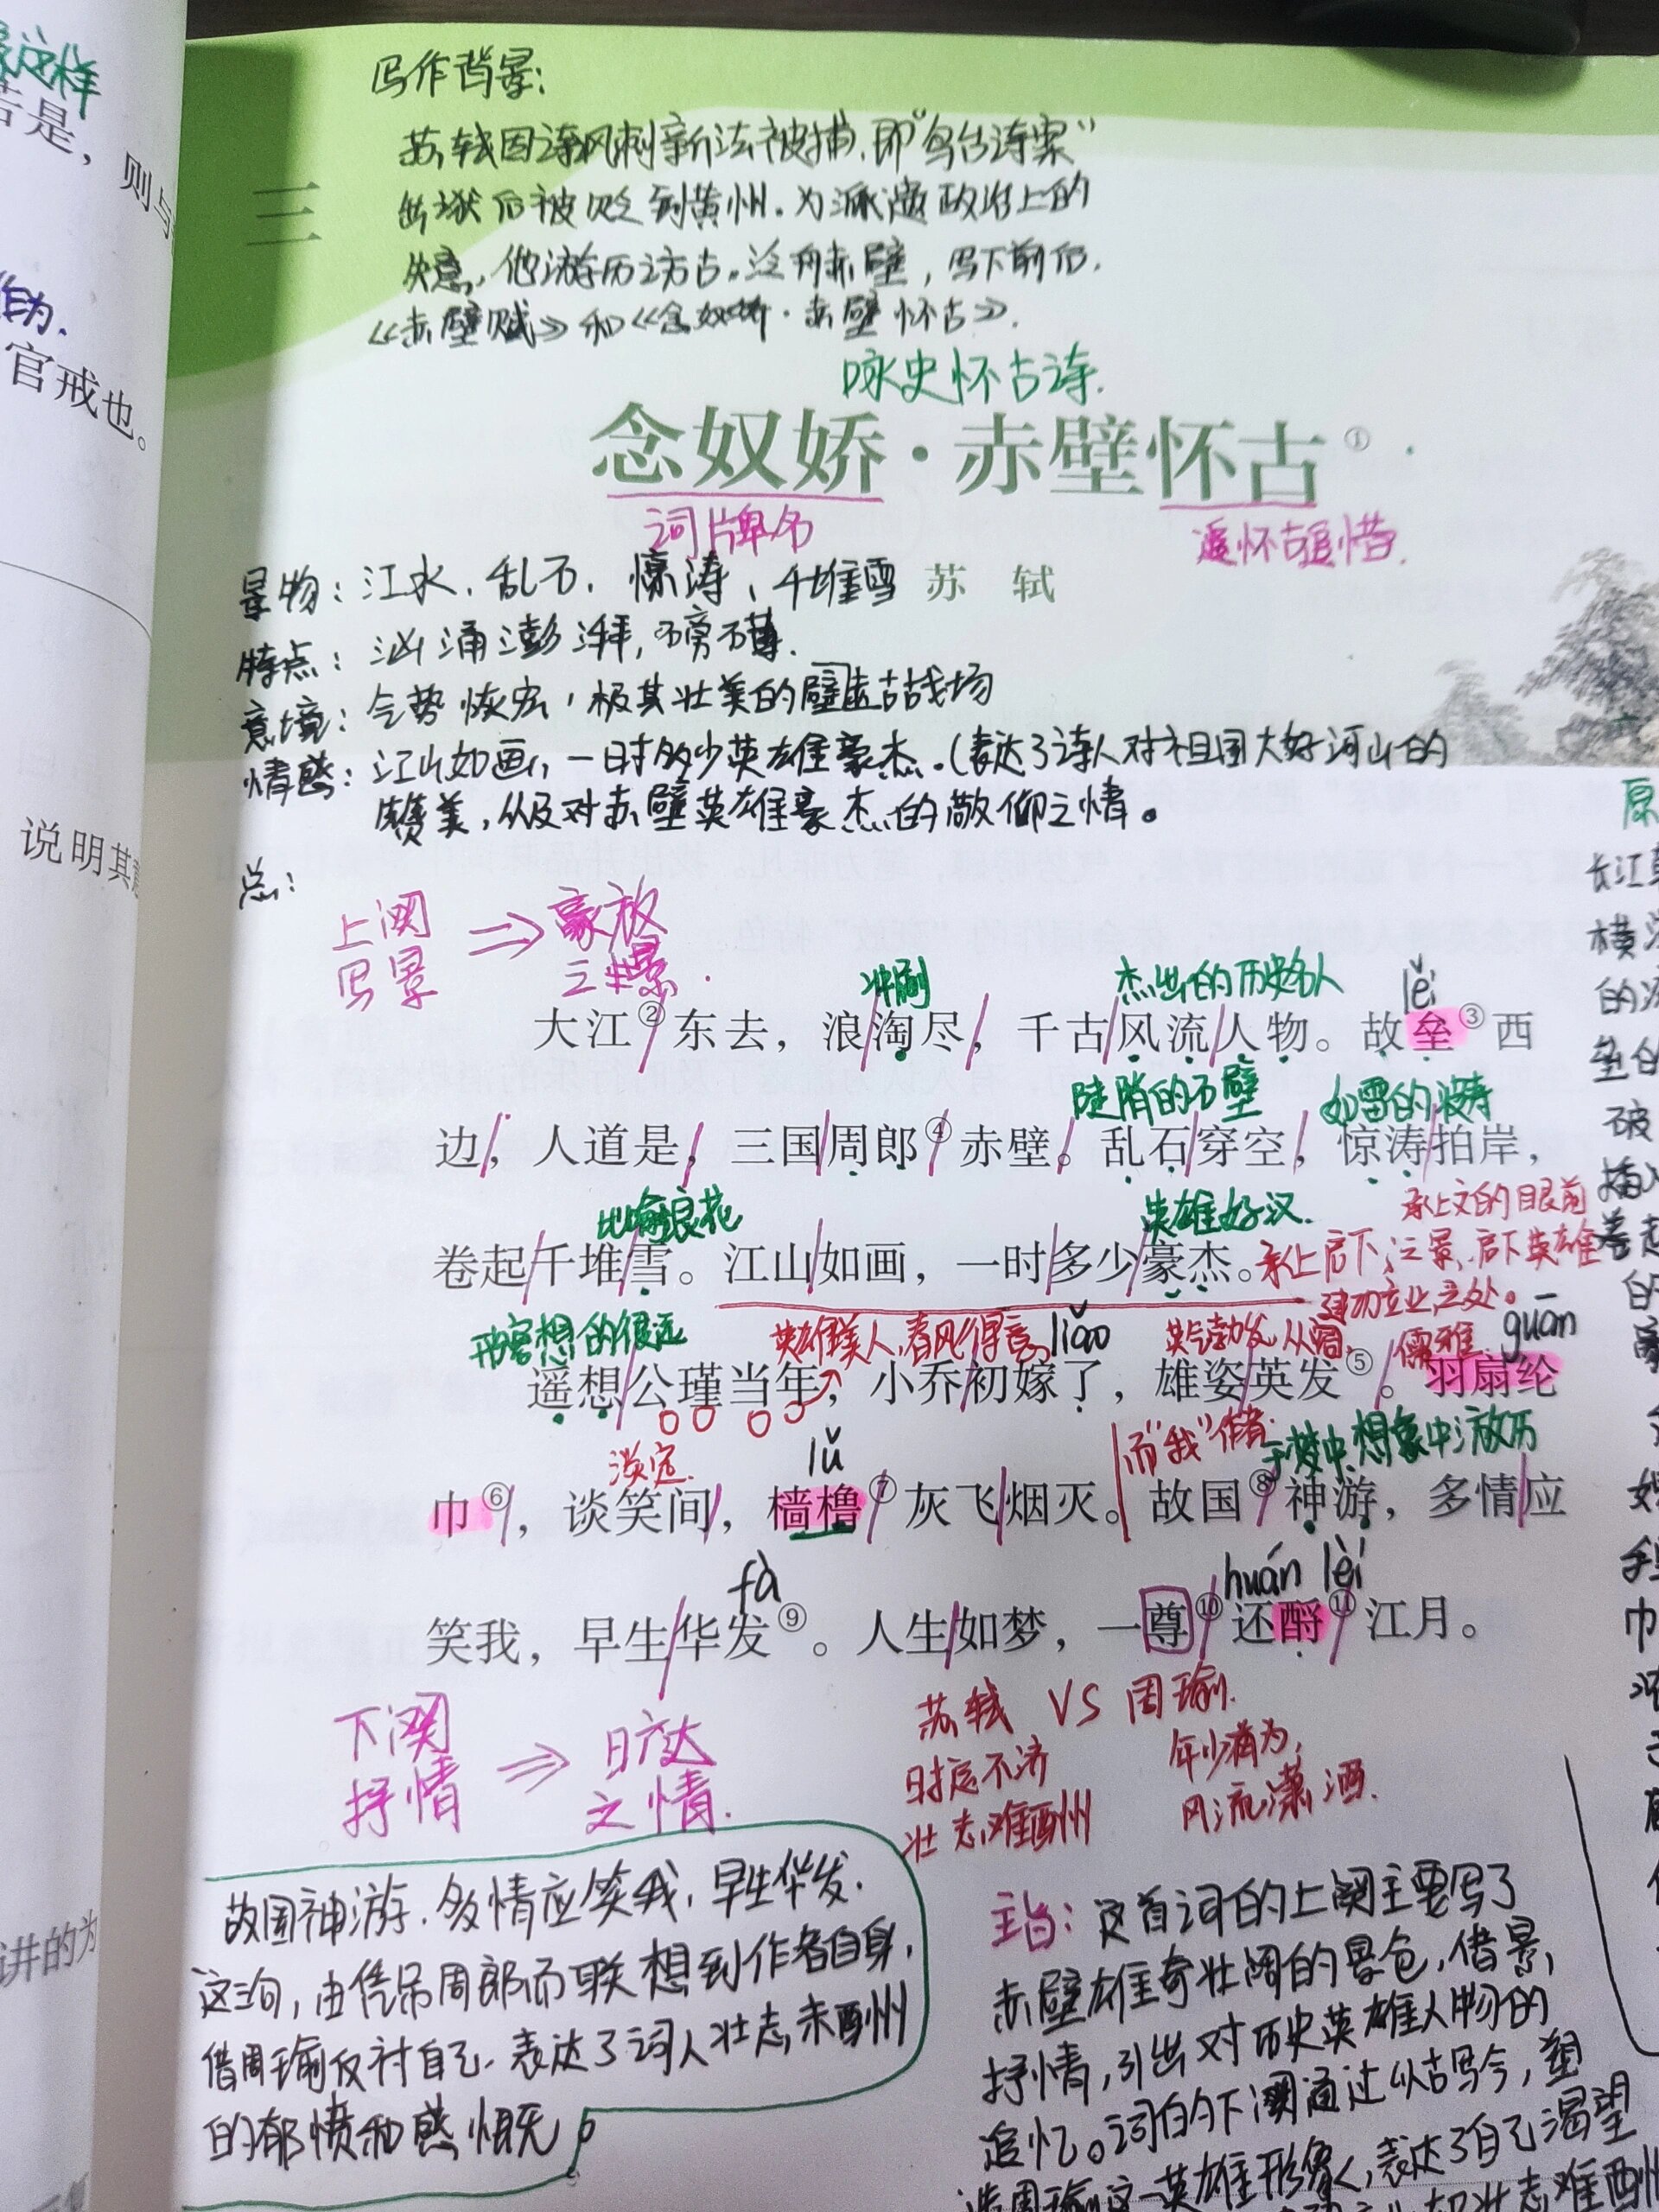 写作背景：
苏轼因诗讽刺新法被捕，即“乌台诗案”
出狱后被贬到黄州。为派遣政治上的
失意，他游历访古。泛舟赤壁，写下前后
《赤壁赋》和《念奴娇·赤壁怀古》。
三
咏史怀古诗.
念奴娇·赤壁怀古①
词牌名
追怀古追惜.
苏 轼
景物：江水、乱石、惊涛、千堆雪
特点：汹涌澎湃，磅礴.
意境：气势恢宏，极其壮美的壁古战场
情感：江山如画，一时多少英雄豪杰。(表达了诗人对祖国大好河山的
赞美，以及对赤壁英雄豪杰的敬仰之情。
总：
上阕
写景
⇒豪放
之景.
冲刷
杰出的历史名人
lěi
大江②东去，浪淘尽，千古风流人物。故垒③西
陡峭的石壁
如雷的波涛
边，人道是，三国周郎④赤壁。乱石穿空，惊涛拍岸，
比喻浪花
英雄好汉.
承上文的目艮前
卷起千堆雪。江山如画，一时多少豪杰。
承上启下;之景，启下英雄
建功立业之处。
形容想的很远
英雄美人，春风得意
liǎo
英气勃发 从容,
儒雅.
guān
遥想公瑾当年，小乔初嫁了，雄姿英发⑤。羽扇纶
淡定.
lǔ
而“我”作者
于梦中、想象中游历
巾⑥，谈笑间，樯橹⑦灰飞烟灭。故国⑧神游，多情应
fà
huán lèi
笑我，早生华发⑨。人生如梦，一尊⑩还酹⑪江月。
下阕
抒情
⇒旷达
之情.
苏轼 VS 周瑜.
时运不济
壮志难酬
年少有为，
风流潇洒.
故国神游，多情应笑我，早生华发.
这句，由凭吊周郎而联想到作者自身，
借周瑜反衬自己，表达了词人壮志未酬
的郁愤和感慨。
主旨：这首词的上阕主要写了
赤壁雄奇壮阔的景色，借景
抒情，引出对历史英雄人物的
追忆。词的下阕通过以古写今，塑
造周瑜这一英雄形象，表达了自己渴望
壮志难酬
像这样
若是，则与
作为.
官戒也。
说明其
讲的为
原
长江
横
的
垒的
破
卷起
的
巾